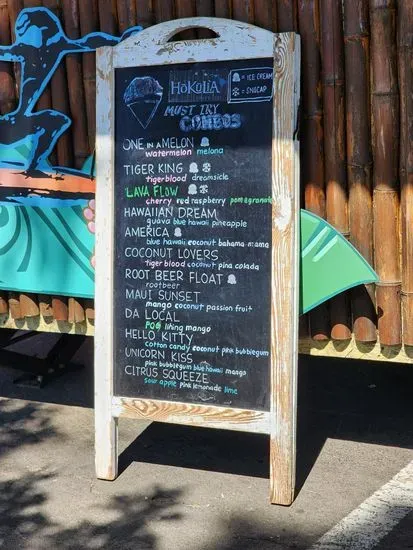 HōKŪLiA
= ICE CREAM
= SNOCAP
MUST TRY
COMBOS
ONE IN A MELON
watermelon melona
TIGER KING
tigerblood dreamsicle
LAVA FLOW
cherry red raspberry pomegranate
HAWAIIAN DREAM
guava blue hawaii pineapple
AMERICA
blue hawaii coconut bahama mama
COCONUT LOVERS
tiger blood coconut pina colada
ROOT BEER FLOAT
rootbeer
MAUI SUNSET
mango coconut passion fruit
DA LOCAL
POG lihing mango
HELLO KITTY
cotton candy coconut pink bubblegum
UNICORN KISS
pink bubblegum blue hawaii mango
CITRUS SQUEEZE
sour apple pink lemonade lime